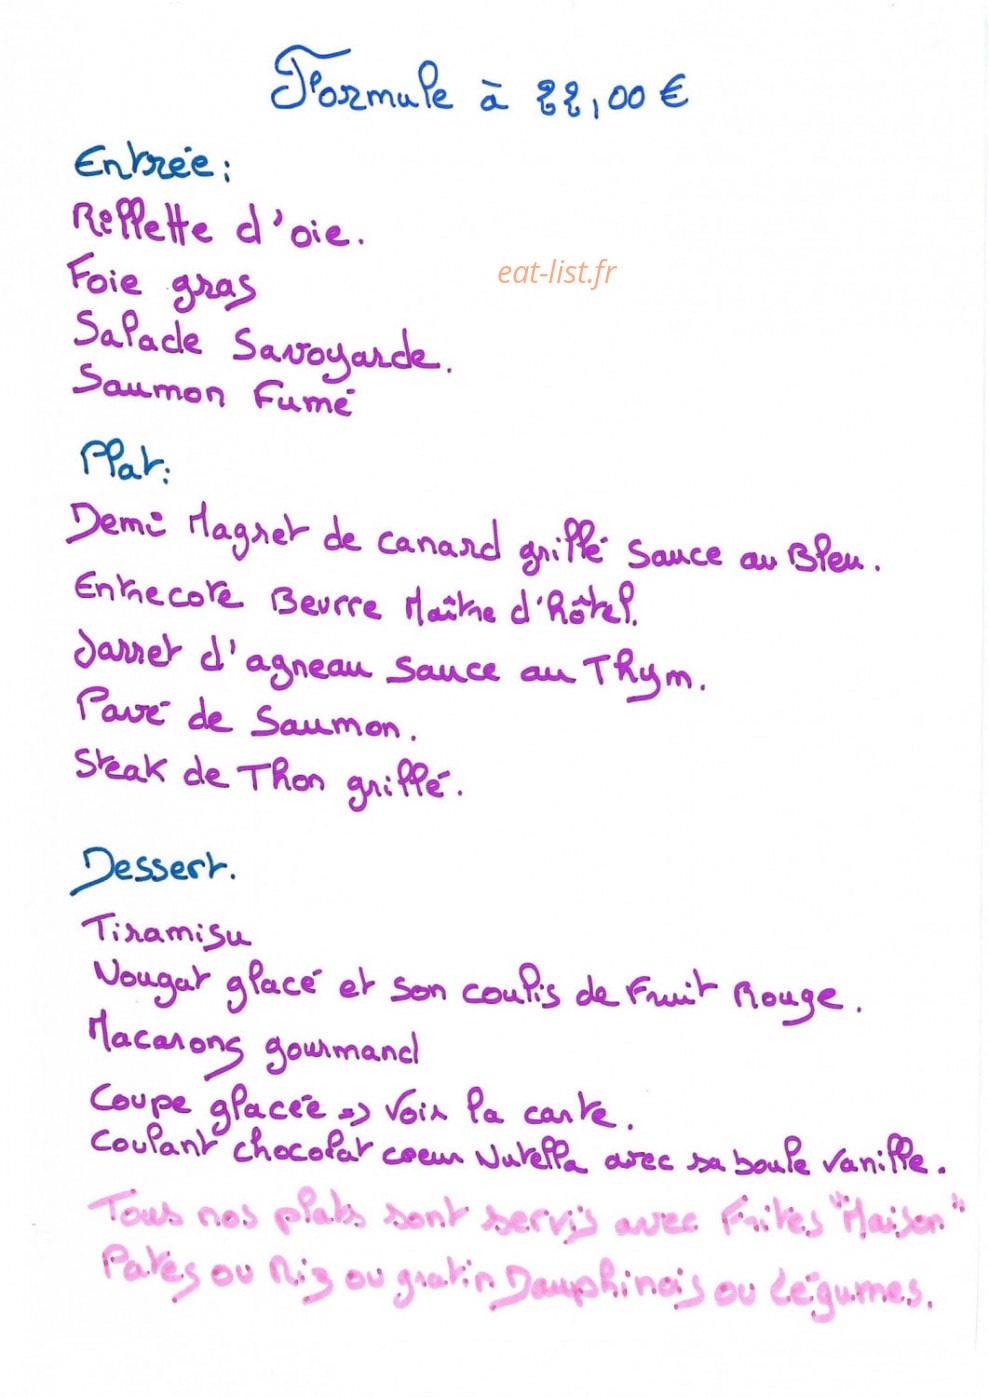 Formule à 22,00 €
Entrée:
Rillette d'oie.
eat-list.fr
Foie gras
Salade Savoyarde.
Saumon Fumé
Plat:
Demi Magret de canard grillé sauce au Bleu.
Entrecote Beurre Maître d'hôtel.
Jarret d'agneau sauce au Thym.
Pavé de Saumon.
Steak de Thon grillé.
Dessert.
Tiramisu
Nougat glacé et son coulis de Fruit Rouge.
Macarons gourmand
Coupe glacée => Voir la carte.
Coulant chocolat coeur Nutella avec sa boule vanille.
Tous nos plats sont servis avec Frites "Maison"
Pates ou Riz ou gratin Dauphinois ou Légumes.